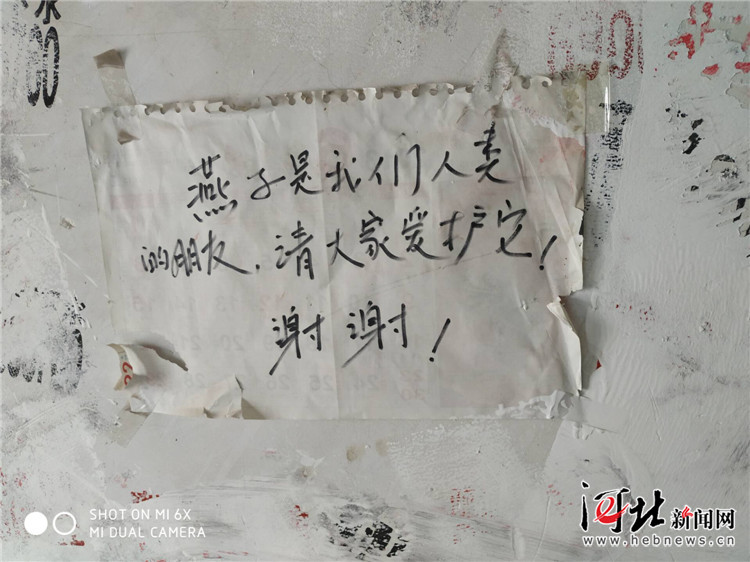 燕子是我们人类
的朋友，请大家爱护它！
谢谢！
SHOT ON MI 6X
MI DUAL CAMERA
河北新闻网
www.hebnews.cn